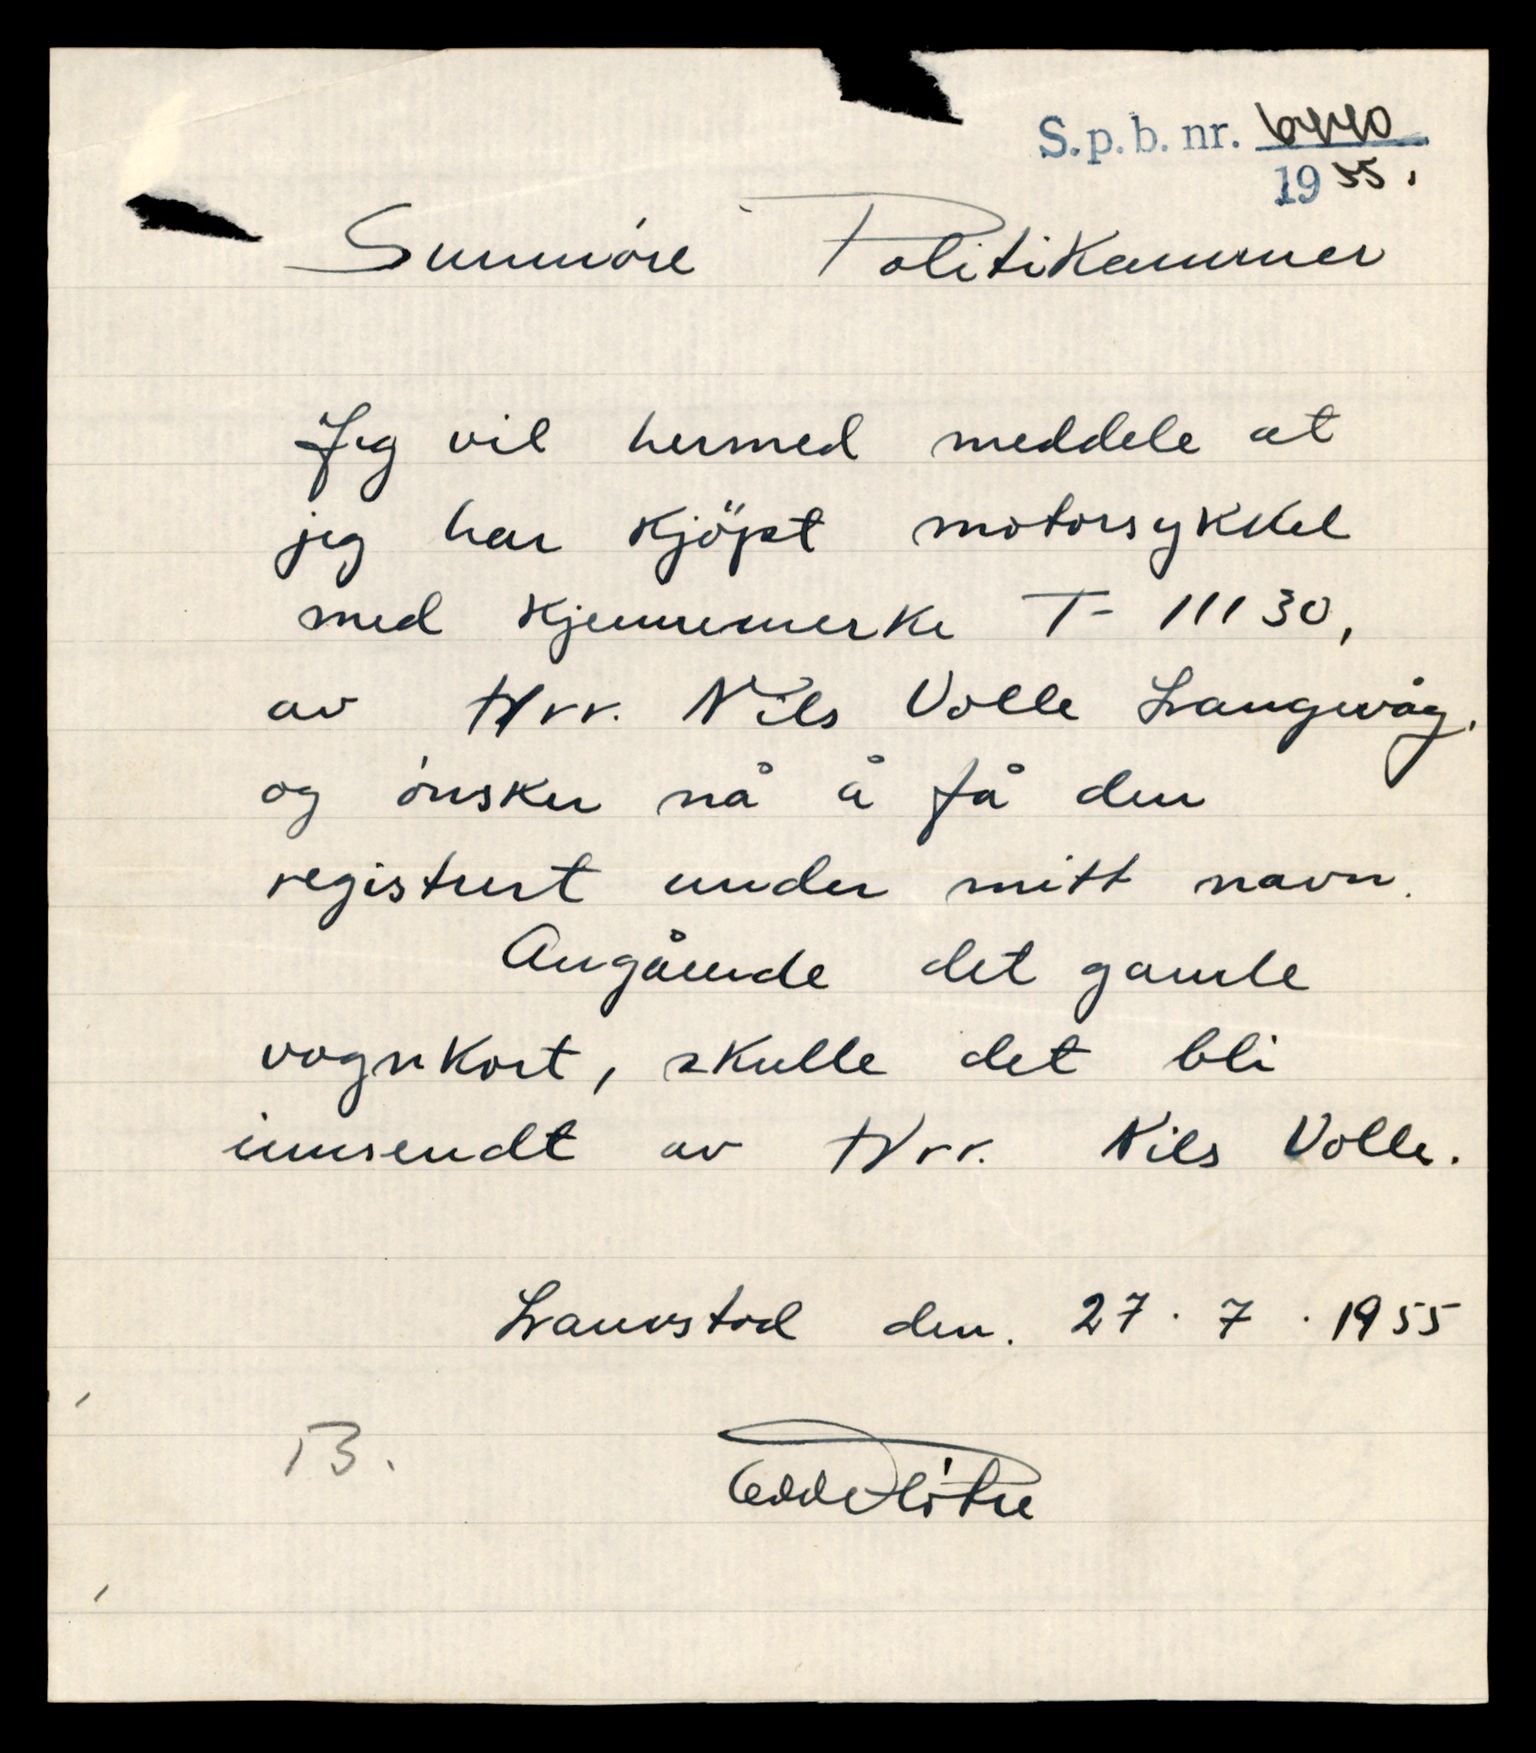 S.p.b. nr. 6440
1955.
Sunmöre Politikammer
Jeg vil hermed meddele at
jeg har kjöpt motorsykkel
med kjennemerke T- 11130,
av Hrr. Nils Volle Langevåg.
og önsker nå å få den
registrert under mitt navn.
Angående det gamle
vognkort, skulle det bli
innsendt av Hrr. Nils Volle.
den. 27. 7. 1955
B.